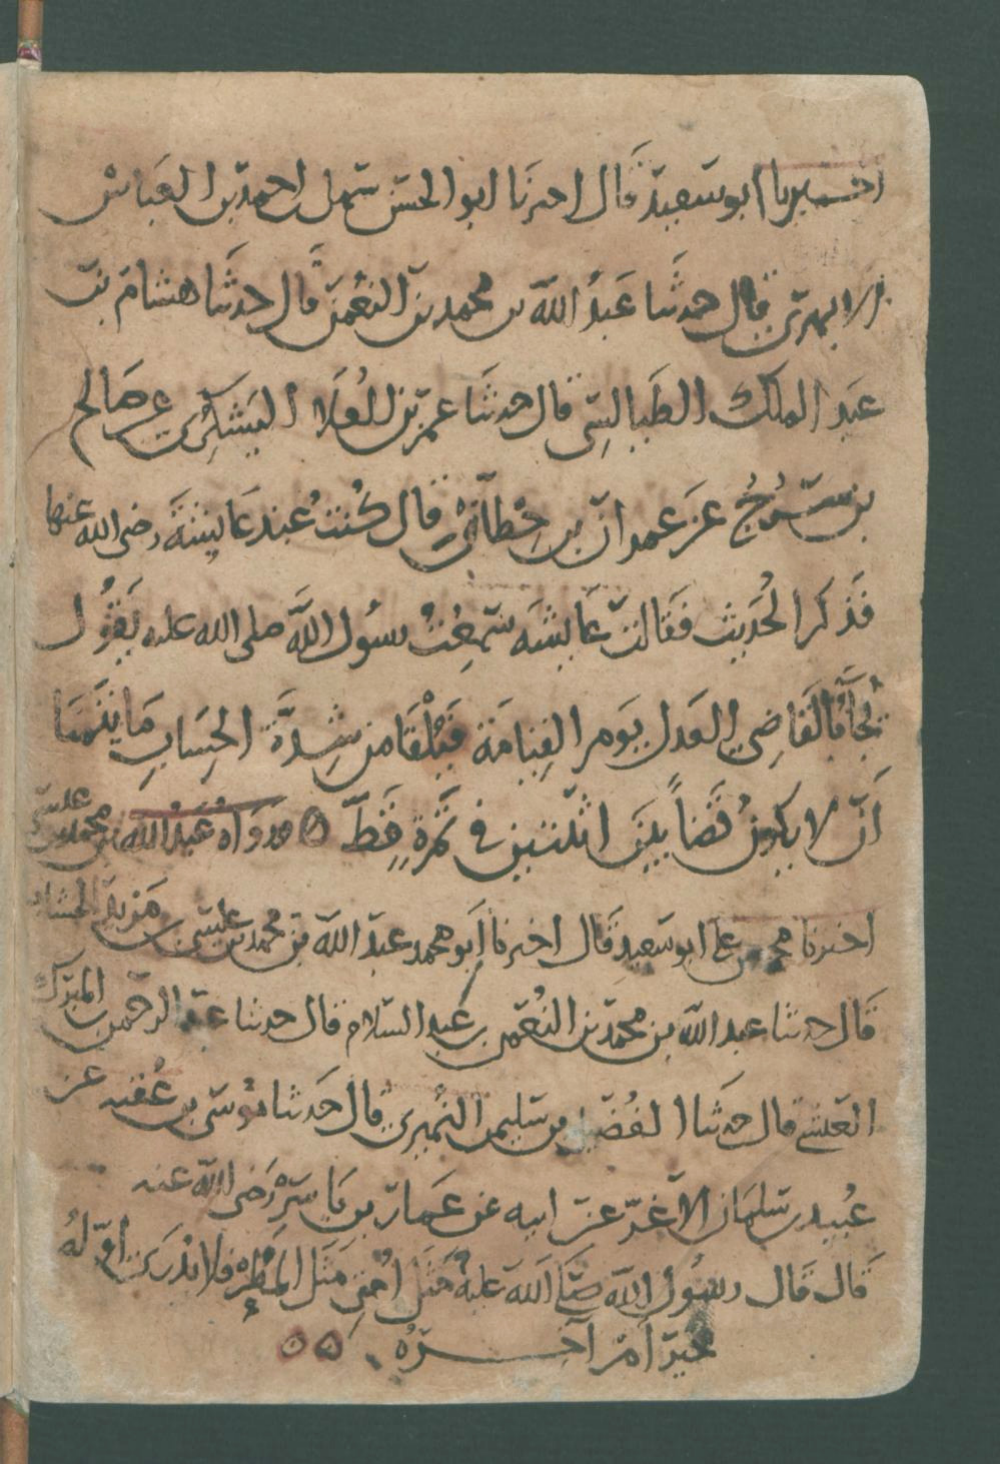 اخبرنا ابو سعيد قال اخبرنا ابو الحسن سهل احمد بن العباس
قال حدثنا عبد الله بن محمد بن النعمن قال حدثنا هشام بن
عبد الملك الطيالسي قال حدثنا عمر بن العلا اليشكري عن صالح
بن سرج عن عمران بن حطان قال كنت عند عايشة رضي الله عنها
فذكر الحديث فقالت عايشه سمعت رسول الله صلى الله عليه يقول
يجآء بالقاضي العدل يوم القيامة فيلقا من شدة الحساب ما يتمنا
ان لا يكون قضا بين اثنين في تمرة قط ورواه عبد الله بن محمد بن عيسى
اخبرنا ابو سعيد قال اخبرنا ابو محمد عبد الله بن محمد بن عيسى بن مزيد الخشاب
قال حدثنا عبد الله بن محمد بن النعمن بن عبد السلام قال حدثنا عبد الرحمن المبرك
العيشي قال حدثنا الفضيل بن سليمن النميري قال حدثنا موسى بن عقبه عن
عبيد بن سلمان الاغر عن ابيه عن عمار بن ياسر رضي الله عنه
قال قال رسول الله صلى الله عليه مثل امتي مثل المطر فلا اوله
خير ام اخره